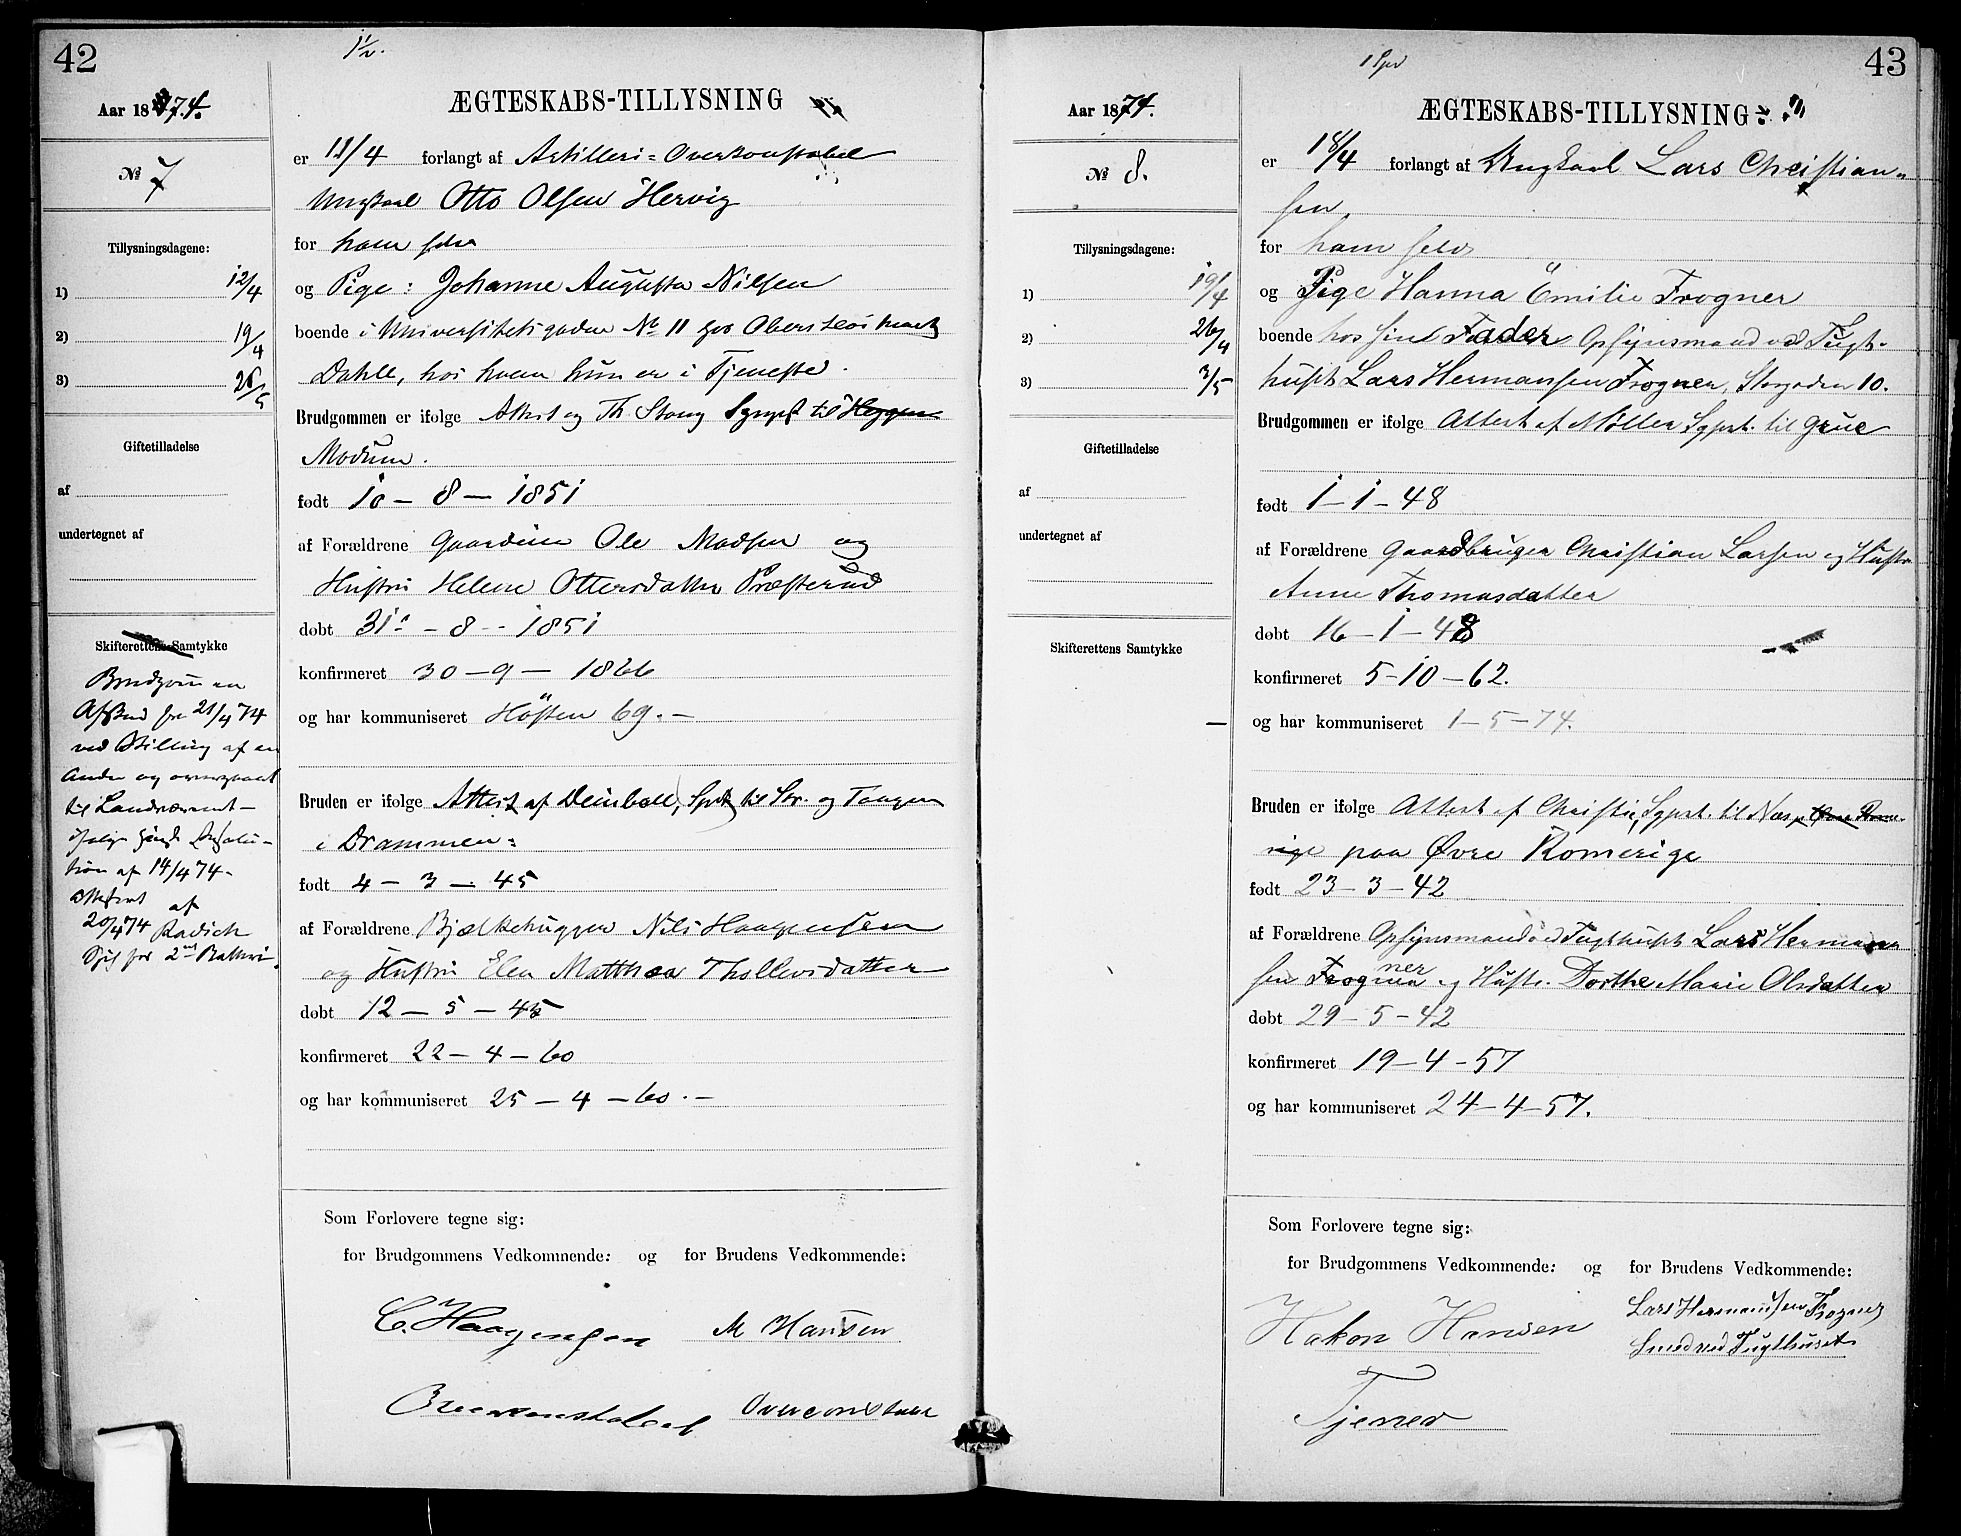 42
1½.
Aar 1874.
ÆGTESKABS-TILLYSNING
№ 7
er 11/4 forlangt af Artilleri-Overkonstabel
Ungkarl Otto Olsen Hervig
Tillysningsdagene:
for ham selv
1) 12/4
og Pige: Johanne Augusta Nilsen
2) 19/4
boende i Universitetsgaden No 11 hos Oberstløitnant
3) 26/4
Dahll, hos hvem hun er i Tjeneste.
Brudgommen er ifølge Attest af Th. Stang Sgnpst til Heggen
Giftetilladelse
Modum.
af
født 10 - 8 - 1851
undertegnet af
af Forældrene Gaardeier Ole Madsen og
Hustru Helene Ottersdatter Præsterud
døbt 31 - 8 - 1851
Skifterettens Samtykke
konfirmeret 30 - 9 - 1866
Brudgommen
Afsked fra 21/4 74
og har kommuniseret Høsten 69. -
ved Stilling af en
Anden og overgaaet
til Landværnet -
Bruden er ifølge Attest af Deinboll, Spr. til Str. og Tangen
ifølge Resolu-
i Drammen:
tion af 14/4 74 -
født 4 - 3 - 45
Attest af
20/4 74 Radich
af Forældrene Bjælkehugger Nils Haagensen
og Hustru Elen Matthea Thollevsdatter
døbt 12 - 5 - 45
konfirmeret 22 - 4 - 60
og har kommuniseret 25 - 4 - 60. -
Som Forlovere tegne sig:
for Brudgommens Vedkommende: og for Brudens Vedkommende:
C. Haagensen M Hansen
Overconstabel
43
1 Spd
Aar 1874.
ÆGTESKABS-TILLYSNING
№ 8.
er 18/4 forlangt af Ungkarl Lars Christian-
sen,
Tillysningsdagene:
for ham selv
1) 19/4
og Pige Hanna Emilie Frogner
2) 26/4
boende hos sin Fader Opsynsmand ved Tugt-
3) 3/5
huset Lars Hermansen Frogner, Storgaden 10.
Brudgommen er ifølge Attest af Møller Sgpst. til Grue
Giftetilladelse
af
født 1 - 1 - 48
undertegnet af
af Forældrene Gaardbruger Christian Larsen og Hustru
Anne Thomasdatter
døbt 16 - 1 - 48
Skifterettens Samtykke
konfirmeret 5 - 10 - 62.
og har kommuniseret 1 - 5 - 74.
Bruden er ifølge Attest af Christie, Sgpst. til Næs, Øvre Rome-
rige paa Øvre Romerige
født 23 - 3 - 42
af Forældrene Opsynsmand ved Tugthuset Lars Herman-
sen Frogner og Hustr. Dorthe Marie Olsdatter
døbt 29 - 5 - 42
konfirmeret 19 - 4 - 57
og har kommuniseret 24 - 4 - 57.
Som Forlovere tegne sig:
for Brudgommens Vedkommende: og for Brudens Vedkommende:
Hakon Hansen Lars Hermansen Frogner
Smed ved Tugthuset
Tjener